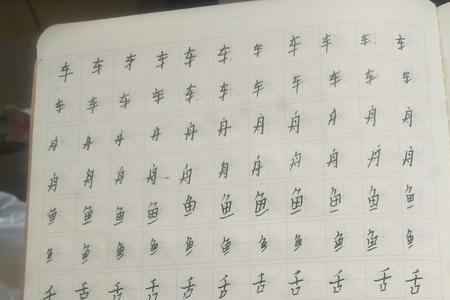 车车车车车车车车车车车
车车车车车车车车车车车
舟舟舟舟舟舟舟舟舟舟舟
舟舟舟舟舟舟舟舟舟舟舟
鱼鱼鱼鱼鱼鱼鱼鱼鱼鱼鱼
鱼鱼鱼鱼鱼鱼鱼鱼鱼鱼鱼
舌舌舌舌舌舌舌舌舌舌舌